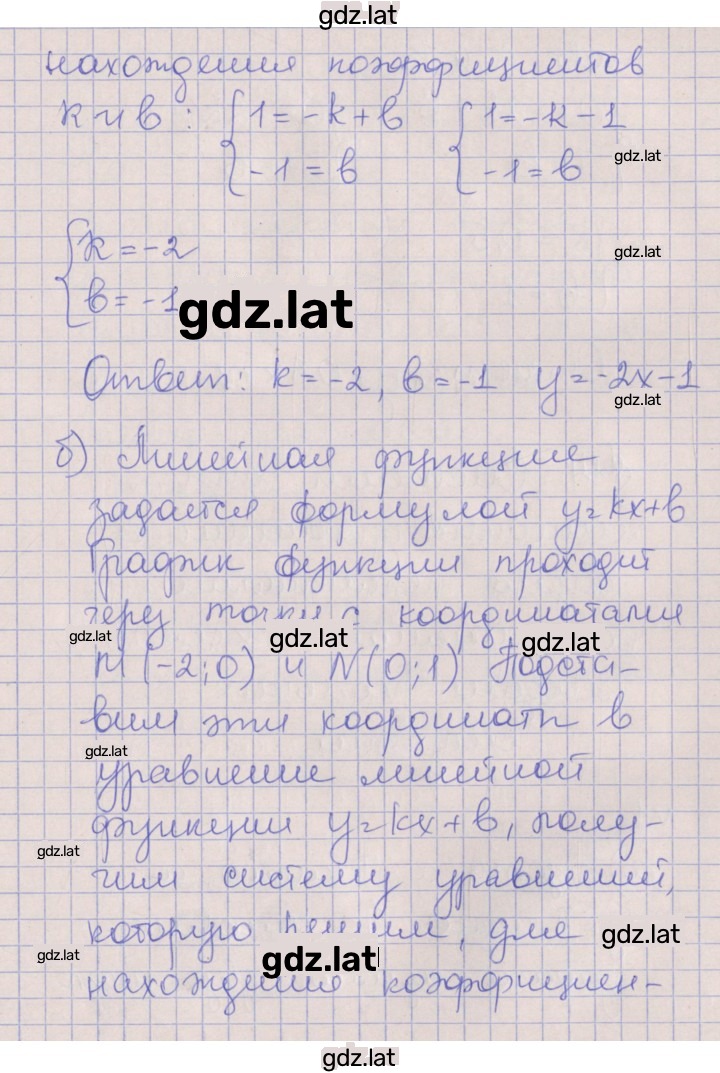 gdz.lat
нахождения коэффициентов
k и b : { 1 = -k + b { 1 = -k - 1
{ -1 = b { -1 = b
gdz.lat
{ k = -2
gdz.lat
{ b = -1
gdz.lat
Ответ: k = -2, b = -1 y = -2x - 1
gdz.lat
б) Линейная функция
задается формулой y = kx + b
График функции проходит
через точки с координатами
gdz.lat gdz.lat gdz.lat
M (-2; 0) и N (0; 1) Подста-
вим эти координаты в
gdz.lat
уравнение линейной
функции y = kx + b, полу-
gdz.lat
чим систему уравнений,
которую решим, для
gdz.lat
gdz.lat gdz.lat
нахождения коэффициен-
gdz.lat